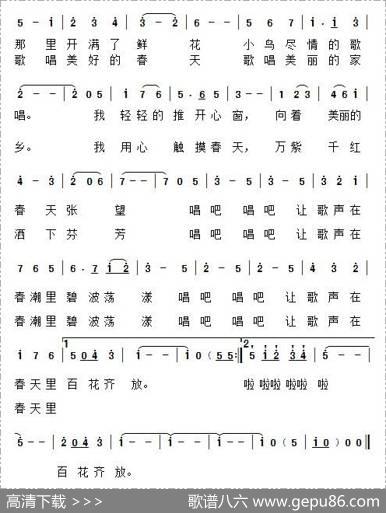 5 - i | 2 3 4 | 3 - 2 | - - - | 5 - i | i . i 3 |
那里开满了鲜 花 小鸟尽情的歌
歌唱美好的春 天 歌唱美丽的家
2 - - | 2 0 5 | i 7 6 | 5 . 6 5 | 3 - - | 1 2 3 | 4 6 i |
唱。 我 轻轻的 推开心 窗, 向着 美丽的
乡。 我 用心 触摸春 天, 万紫 千红
4 - 3 | 2 0 6 | 7 - - | 7 0 5 | 3 - 5 | 3 - 5 | 3 2 i |
春 天张 望 唱吧 唱吧 让歌声在
洒 下芬 芳 唱吧 唱吧 让歌声在
7 6 5 | 6 . 7 i 2 | 3 - 5 | 3 - 5 | 2 - 5 | 4 3 2 |
春潮里 碧 波荡 漾 唱吧 唱吧 让歌声在
春潮里 碧 波荡 漾 唱吧 唱吧 让歌声在
i 7 6 | 5 0 4 3 | i - - | i - - | i 0 ( 5 5 :| 5 i 2 3 4 |
春天里 百花齐 放。 啦 啦啦 啦啦 啦
春天里
5 - - | 2 0 4 3 | i - - | i - - | i 0 ( 5 | i . i ) 0 | 0 0 ||
百花齐 放。
高清下载 >>> 歌谱八六 www.gepu86.com